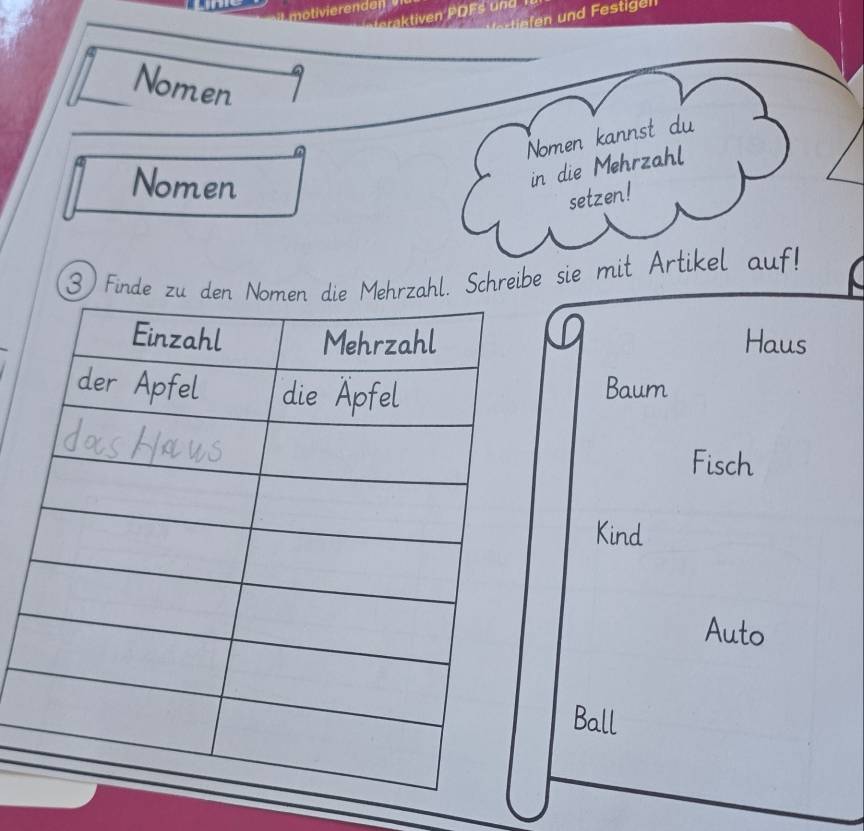 motivierenden
interaktiven PDFs und
Vertiefen und Festigen
Nomen
Nomen
Nomen kannst du
in die Mehrzahl
setzen!
3 Finde zu den Nomen die Mehrzahl. Schreibe sie mit Artikel auf!
Einzahl Mehrzahl
der Apfel die Äpfel
das Haus
Haus
Baum
Fisch
Kind
Auto
Ball